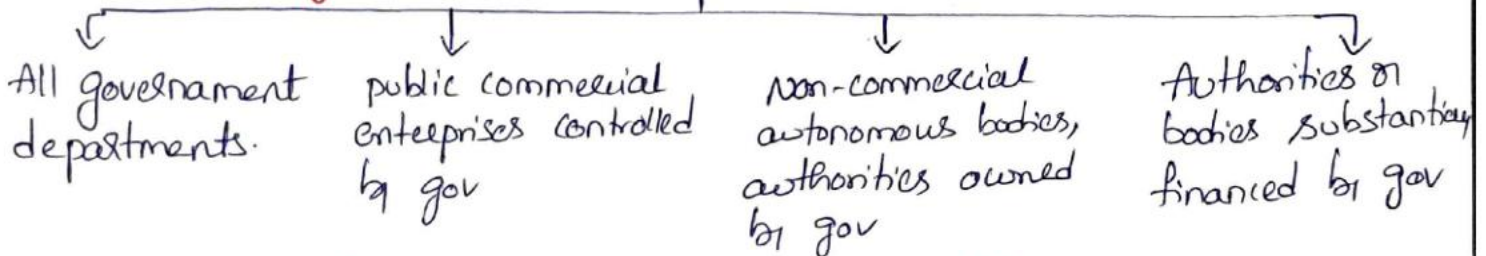 All governament
departments.
public commercial
enterprises controlled
by gov
Non-commercial
autonomous bodies,
authorities owned
by gov
Authorities or
bodies substantialy
financed by gov